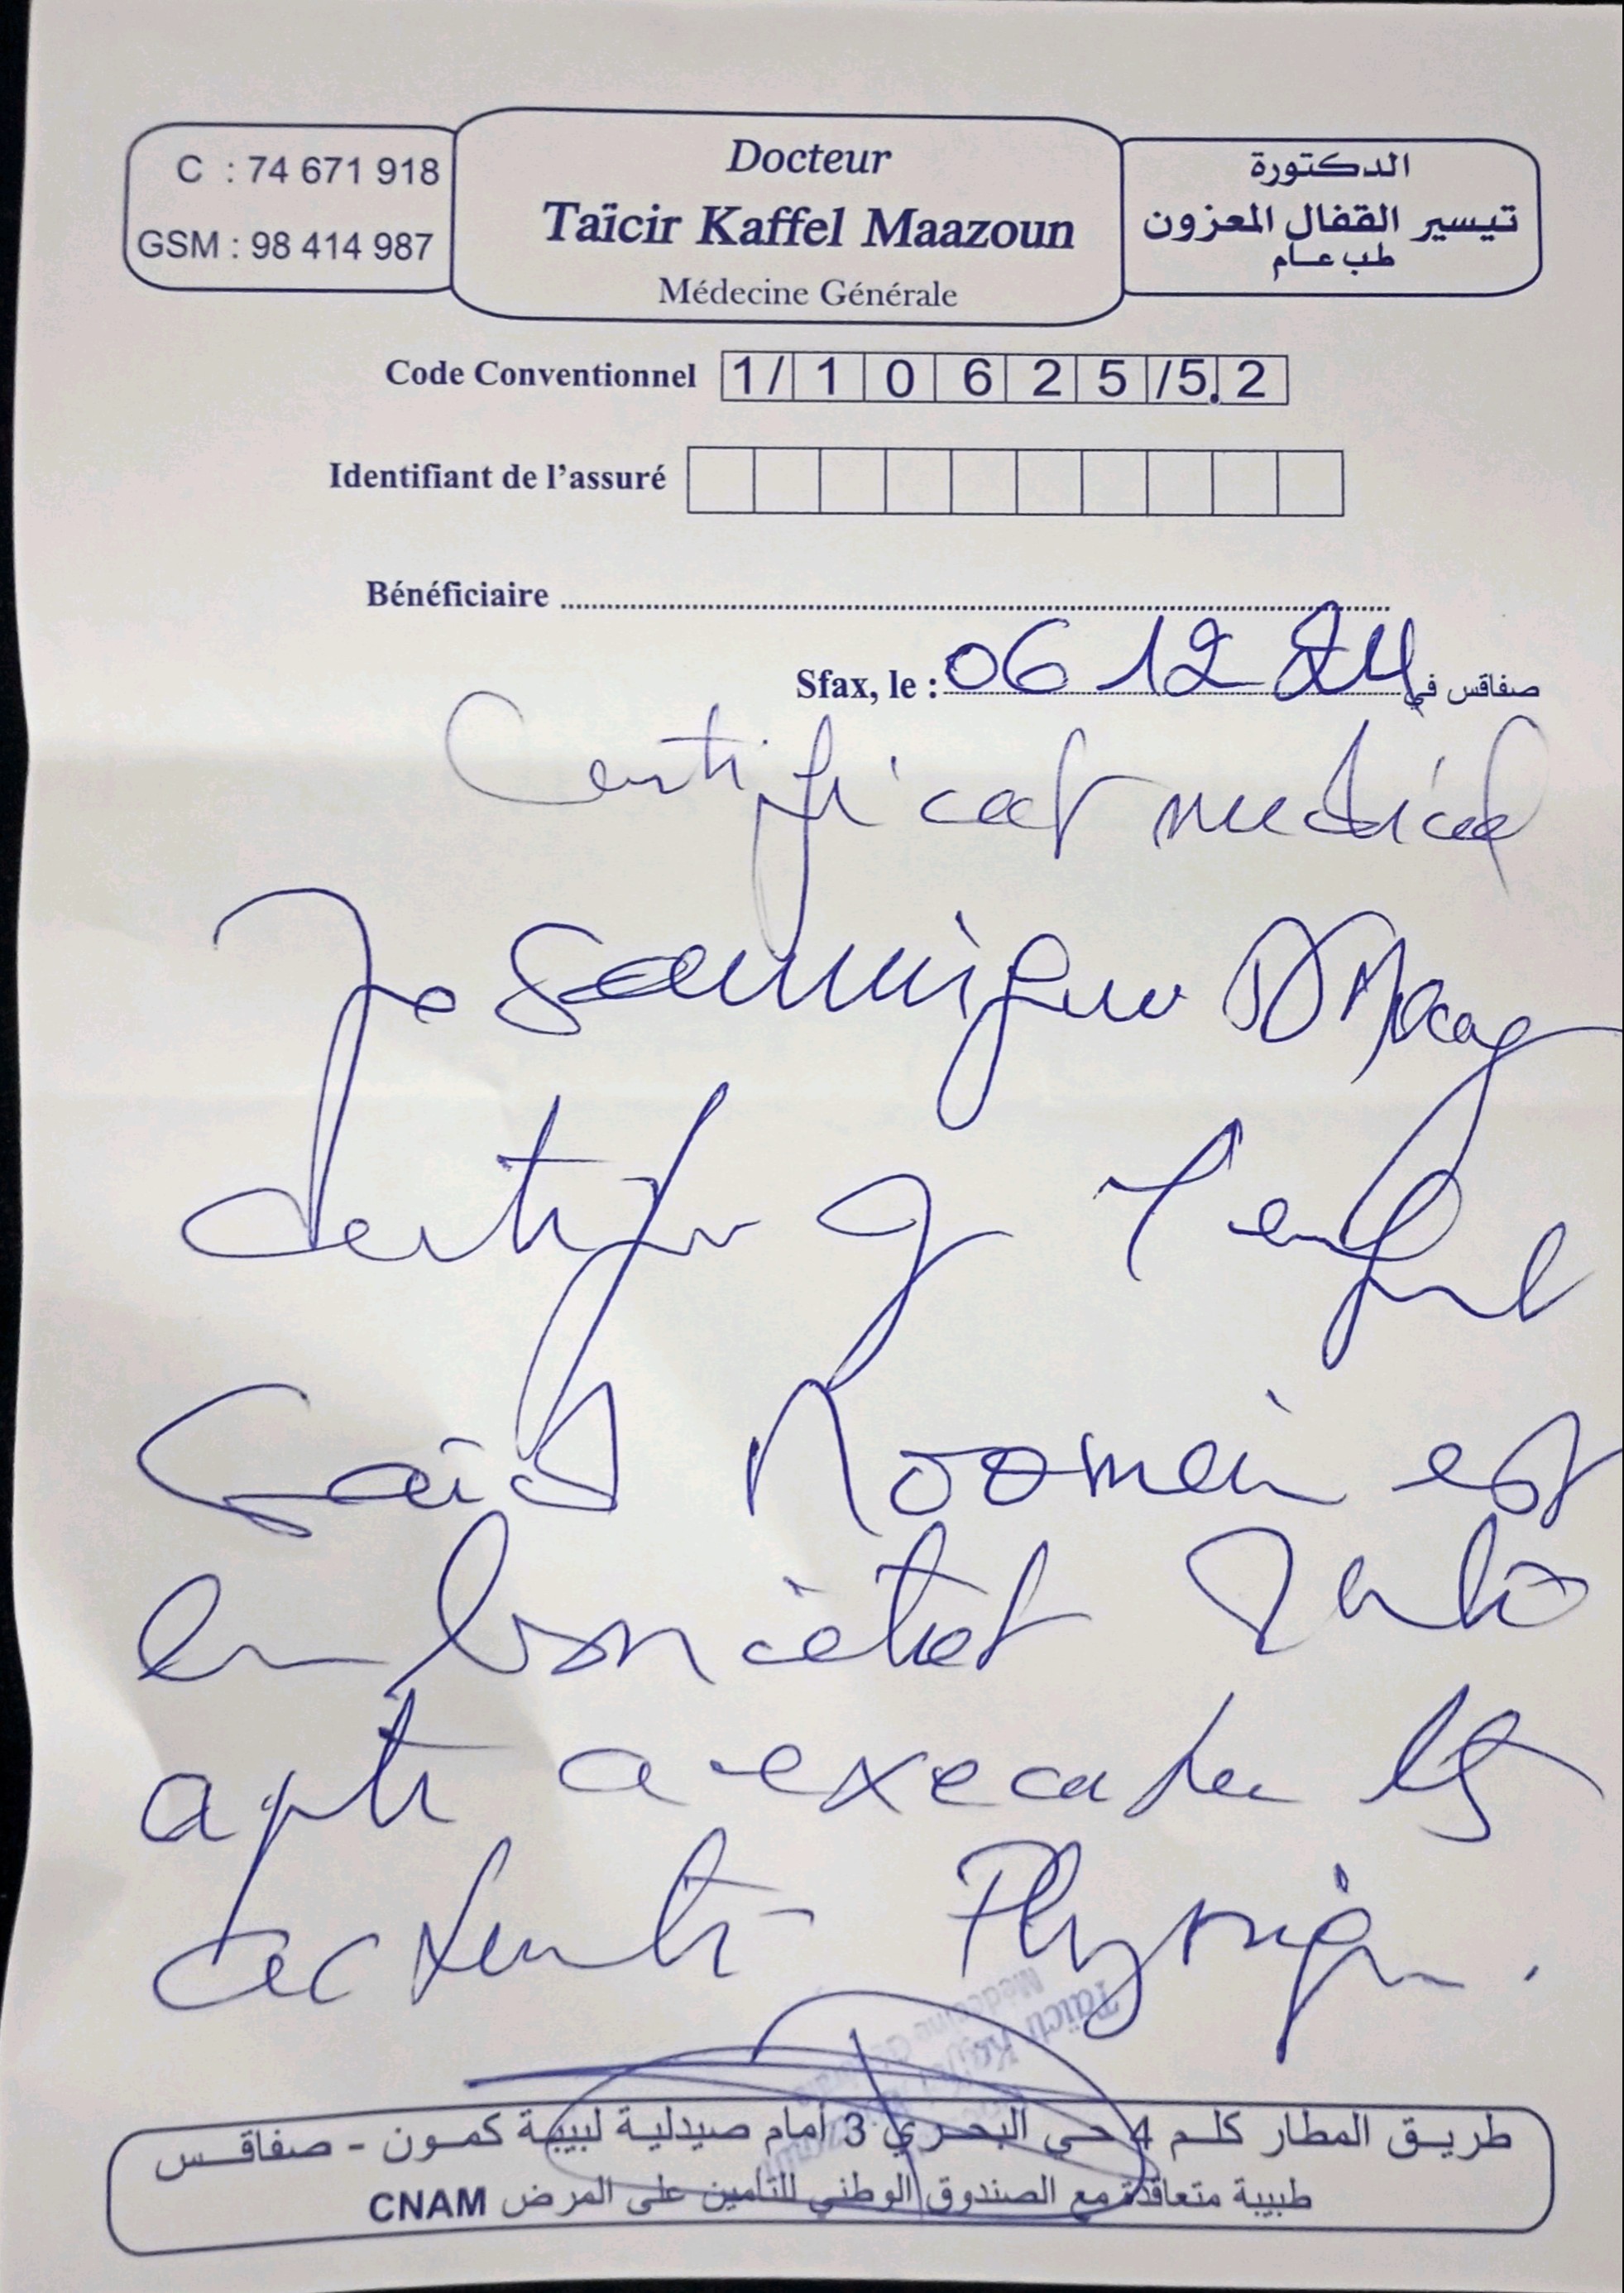 C : 74 671 918
GSM : 98 414 987
Docteur
Taïcir Kaffel Maazoun
Médecine Générale
الدكتورة
تيسير القفال المعزون
طب عام
Code Conventionnel 1/ 1 0 6 2 5 /5. 2
Identifiant de l'assuré
Bénéficiaire
Sfax, le : 06 12 24 صفاقس في
Certificat medical
Je soussigne Dr
certifie q l'enfant
est
en bon état
apte a executer les
Physiq.
طريق المطار كلم 4 حي البحري 3 أمام صيدلية لبيبة كمون - صفاقس
طبيبة متعاقدة مع الصندوق الوطني للتأمين على المرض CNAM